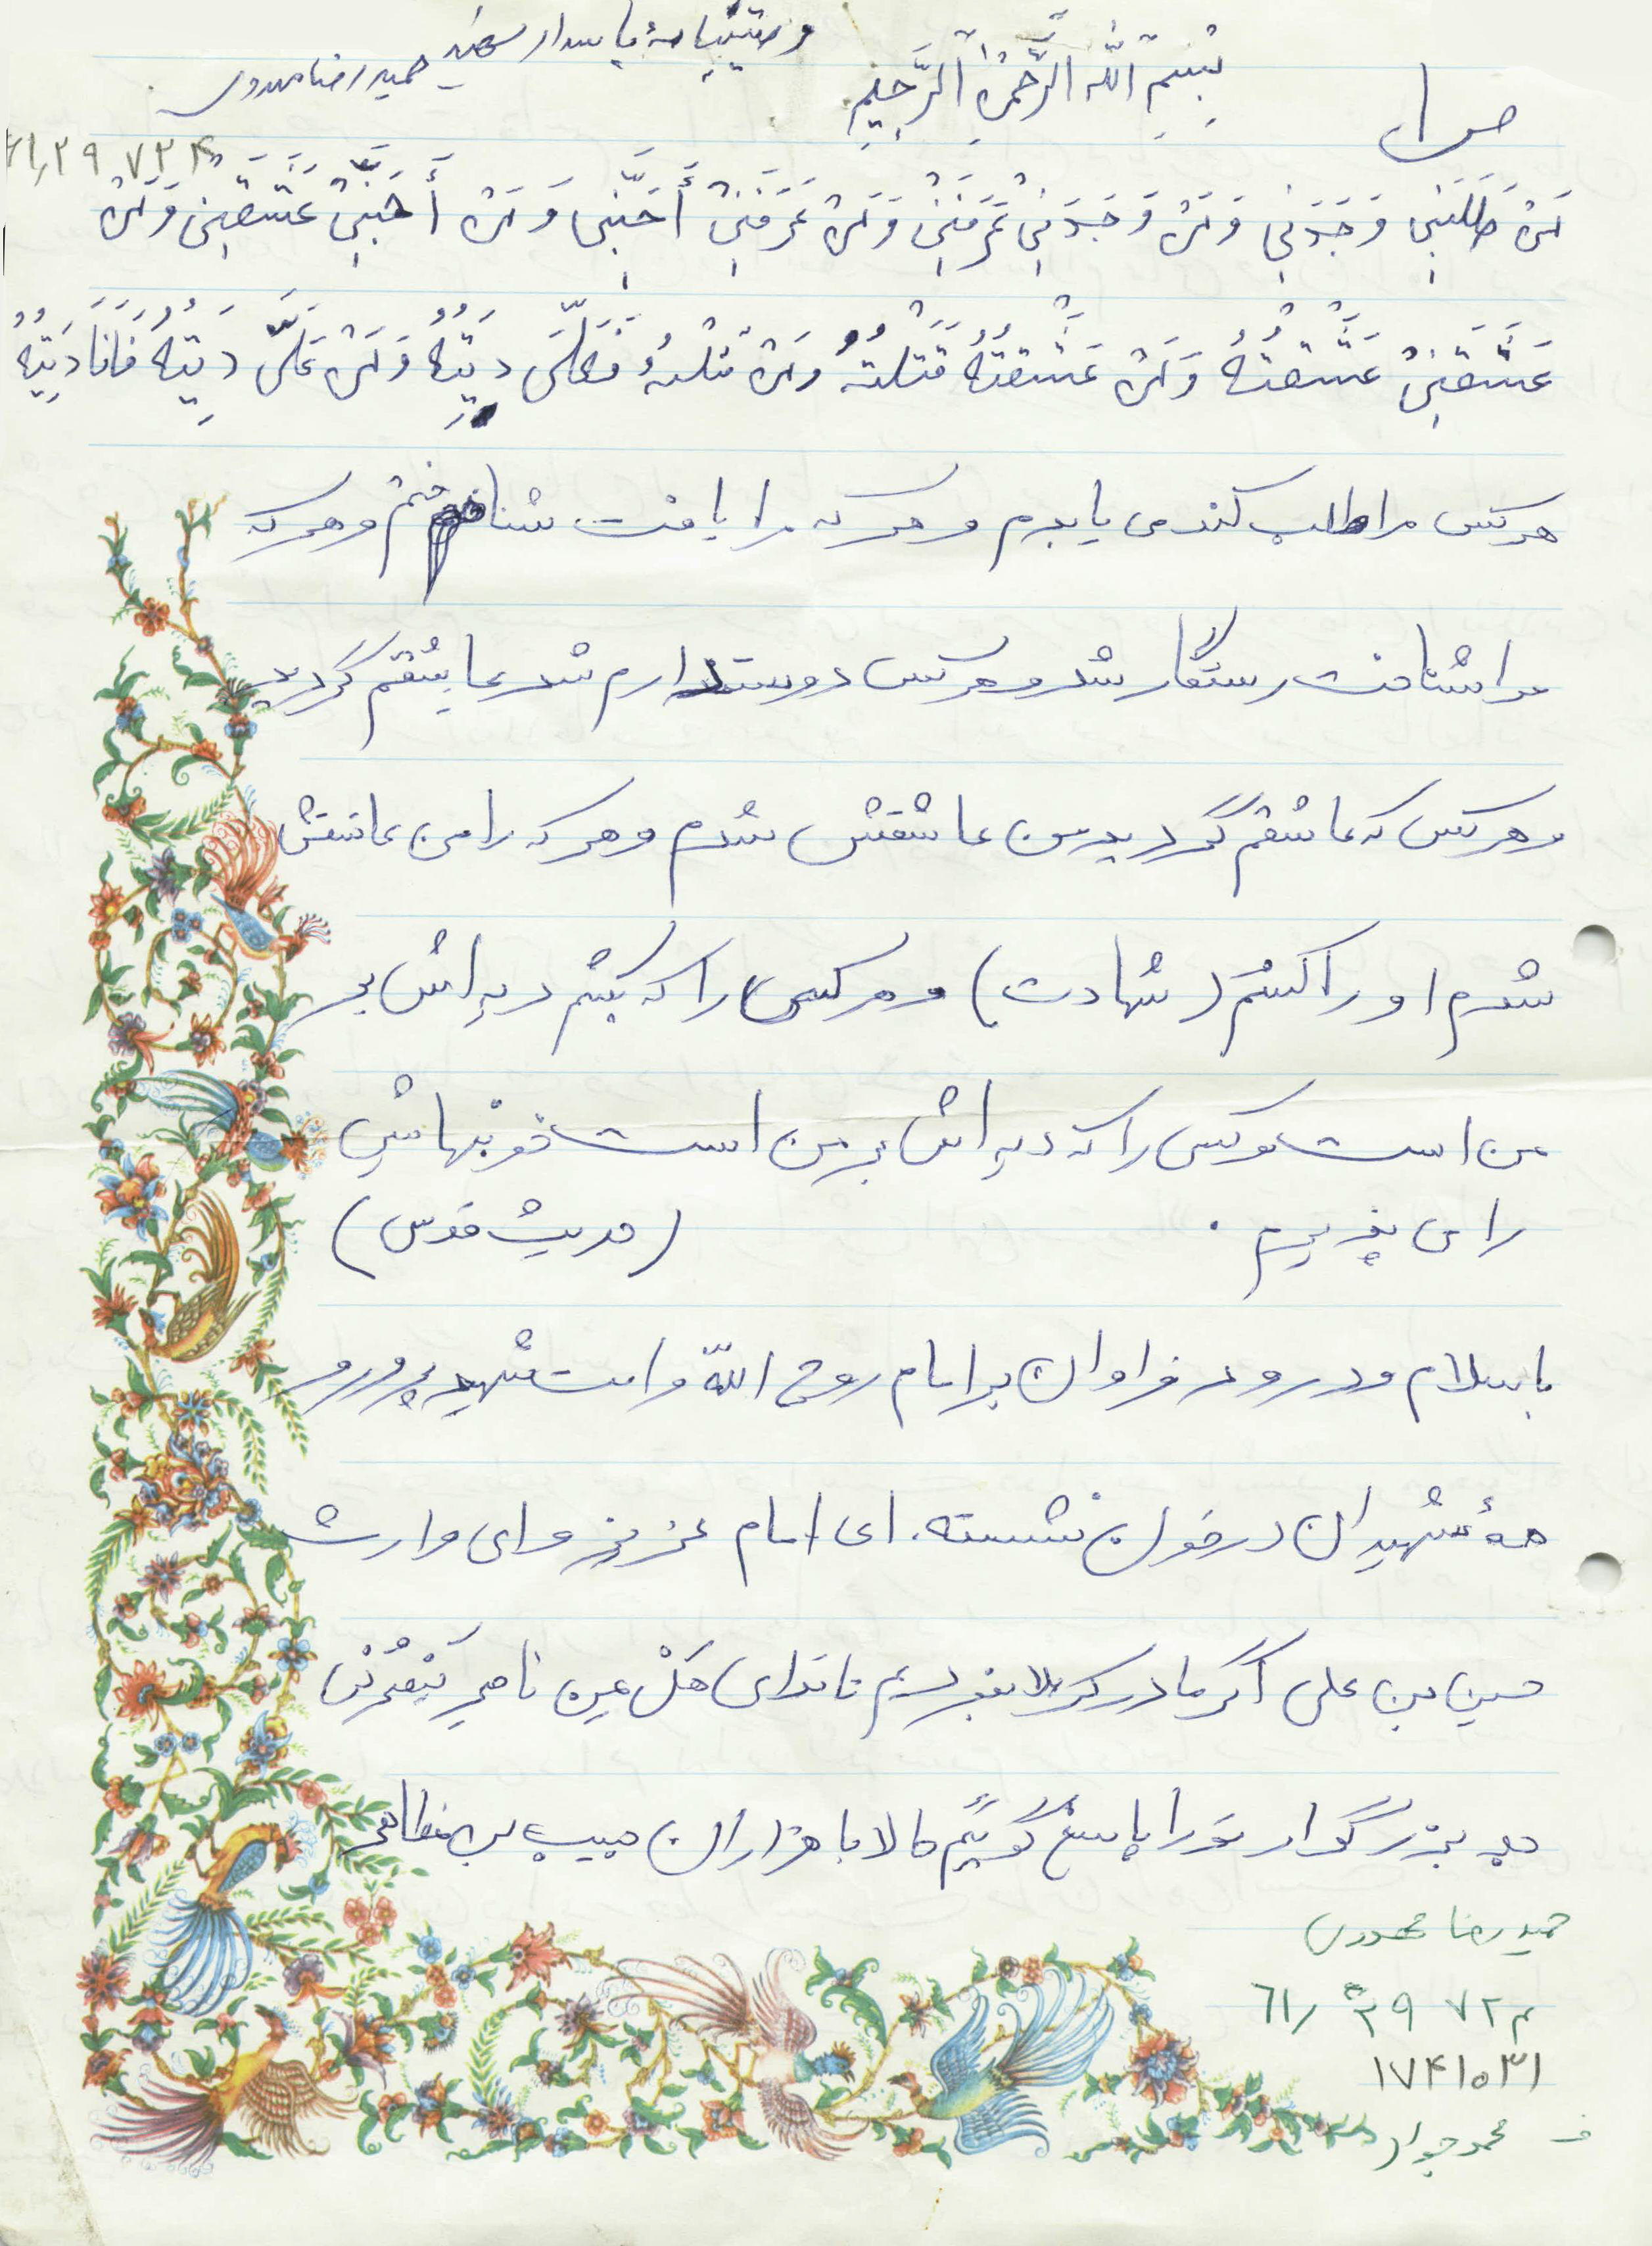 وصیتنامهٔ پاسدار شهید حمیدرضا محمودی
بِسْمِ اللهِ الرَّحْمنِ الرَّحِيمِ
ص ۱
۶۱٫۲۹ ۷۲۴
مَنْ طَلَبَنِی وَجَدَنِی وَ مَنْ وَجَدَنِی عَرَفَنِی وَ مَنْ عَرَفَنِی أَحَبَّنِی وَ مَنْ أَحَبَّنِی عَشَقَنِی وَ مَنْ
عَشَقَنِی عَشَقْتُهُ وَ مَنْ عَشَقْتُهُ قَتَلْتُهُ وَ مَنْ قَتَلْتُهُ فَعَلَیَّ دِيَتُهُ وَ مَنْ عَلَیَّ دِيَتُهُ فَاَنَا دِيَتُهُ
هرکس مرا طلب کند می یابدم و هر که مرا یافت شناختم و هر که
مرا شناخت رستگار شد و هرکس دوستدارم شد عاشقم گردید
و هرکس که عاشقم گردید من عاشقش شدم و هر که را من عاشقش
شدم او را کشتم (شهادت) و هر کسی را که بکشم دیه اش بر
من است و کسی را که دیه اش بر من است خونبهاش
را می پذیرم . (حدیث قدسی)
با سلام و درود فراوان بر امام روح الله و امت شهید پرور و
همهٔ شهیدان در خون نشسته. ای امام عزیز و ای وارث
حسین بن علی اگر ما در کربلا نبودیم تا ندای هَلْ مِن ناصِرٍ یَنْصُرْنی
جد بزرگوار تو را پاسخ گوئیم حالا با هزاران حبیب بن مظاهر
حمیدرضا محمودی
۶۱٫ ۲۹ ۷۲ م
۱۷۴۱۰۳۱
ف محمدجواد